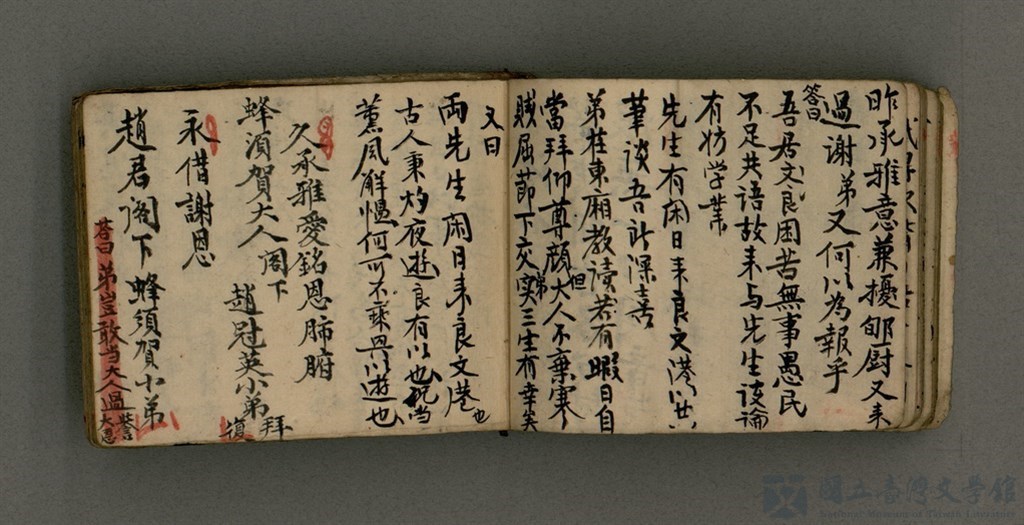 昨承雅意兼擾郇厨又来
過謝弟又何以為報乎
答曰
吾居文良困苦無事愚民
不足共語故来与先生談論
有妨学業
先生有闲日来良文港以共
華談吾計深喜
弟在東廂教讀若有暇日自
當拜仰尊顔但大人不棄寒
賎屈節下交弟実三生有幸矣
又曰
両先生闲日来良文港也
古人秉灼夜遊良有以也況当
薫風解慍何可不乘興以遊也
久承雅愛銘恩肺腑
蜂須賀大人阁下
趙冠英小弟拜復
永借謝恩
趙君阁下蜂須賀小弟
答曰弟豈敢当大人過誉大恩
國立臺灣文學館
National Museum of Taiwan Literature